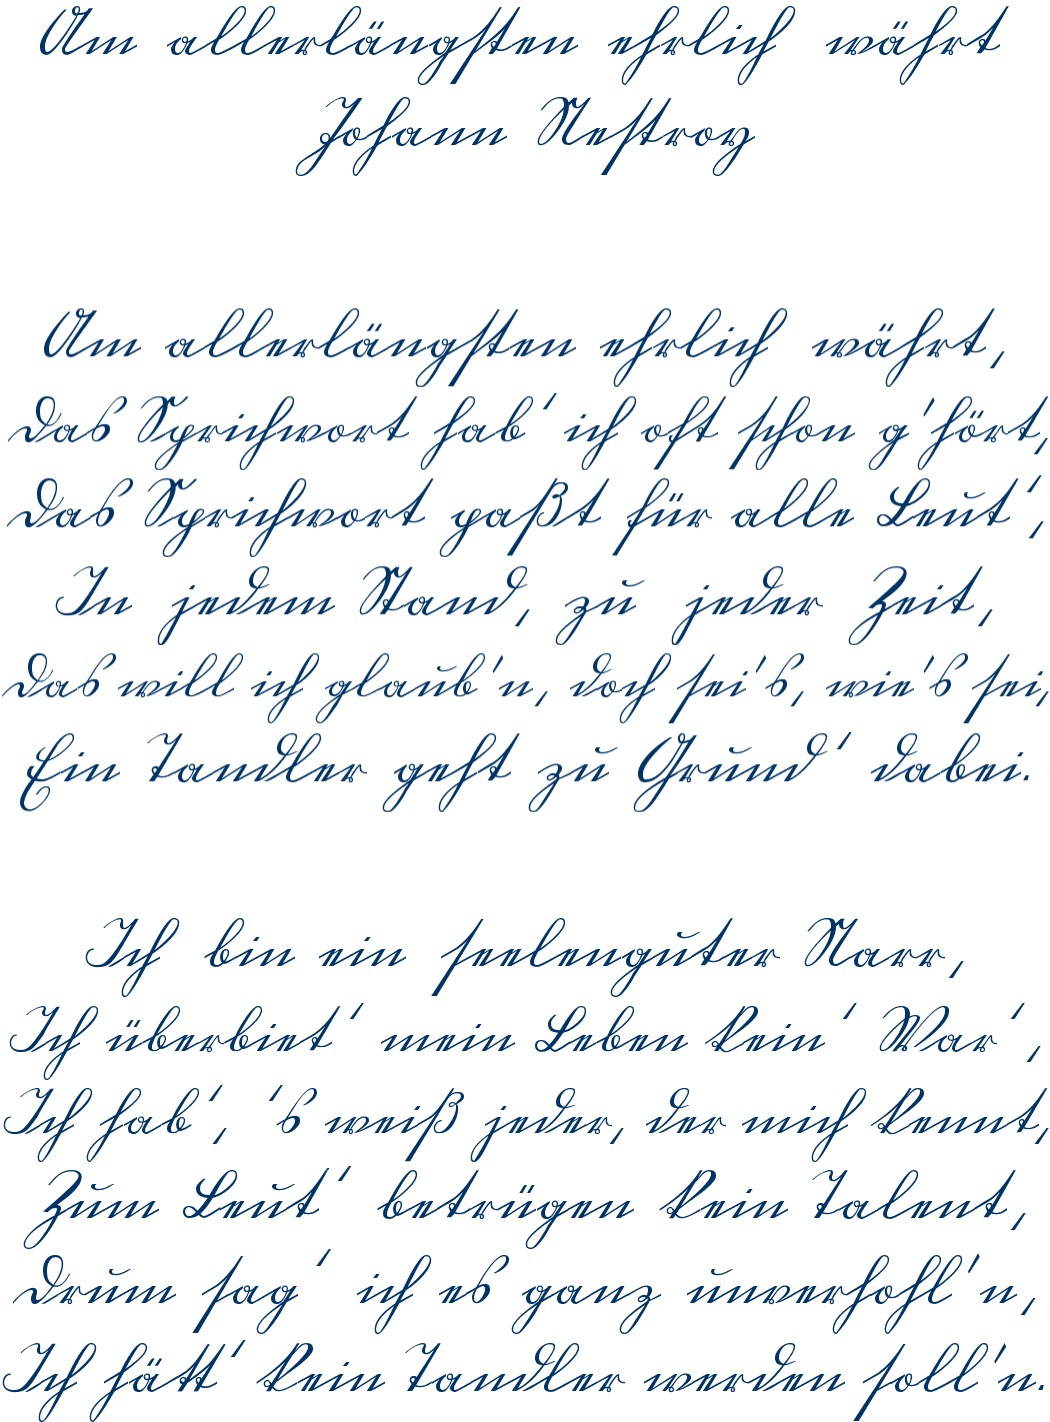 Am allerlängsten ehrlich währt
Johann Nestroy
Am allerlängsten ehrlich währt,
Das Sprichwort hab' ich oft schon g'hört,
Das Sprichwort paßt für alle Leut',
In jedem Stand, zu jeder Zeit,
Das will ich glaub'n, doch sei's, wie's sei,
Ein Tandler geht zu Grund' dabei.
Ich bin ein seelenguter Narr,
Ich überbiet' mein Leben kein' War',
Ich hab', 's weiß jeder, der mich kennt,
Zum Leut' betrügen kein Talent,
Drum sag' ich es ganz unverhohl'n,
Ich hätt' kein Tandler werden soll'n.